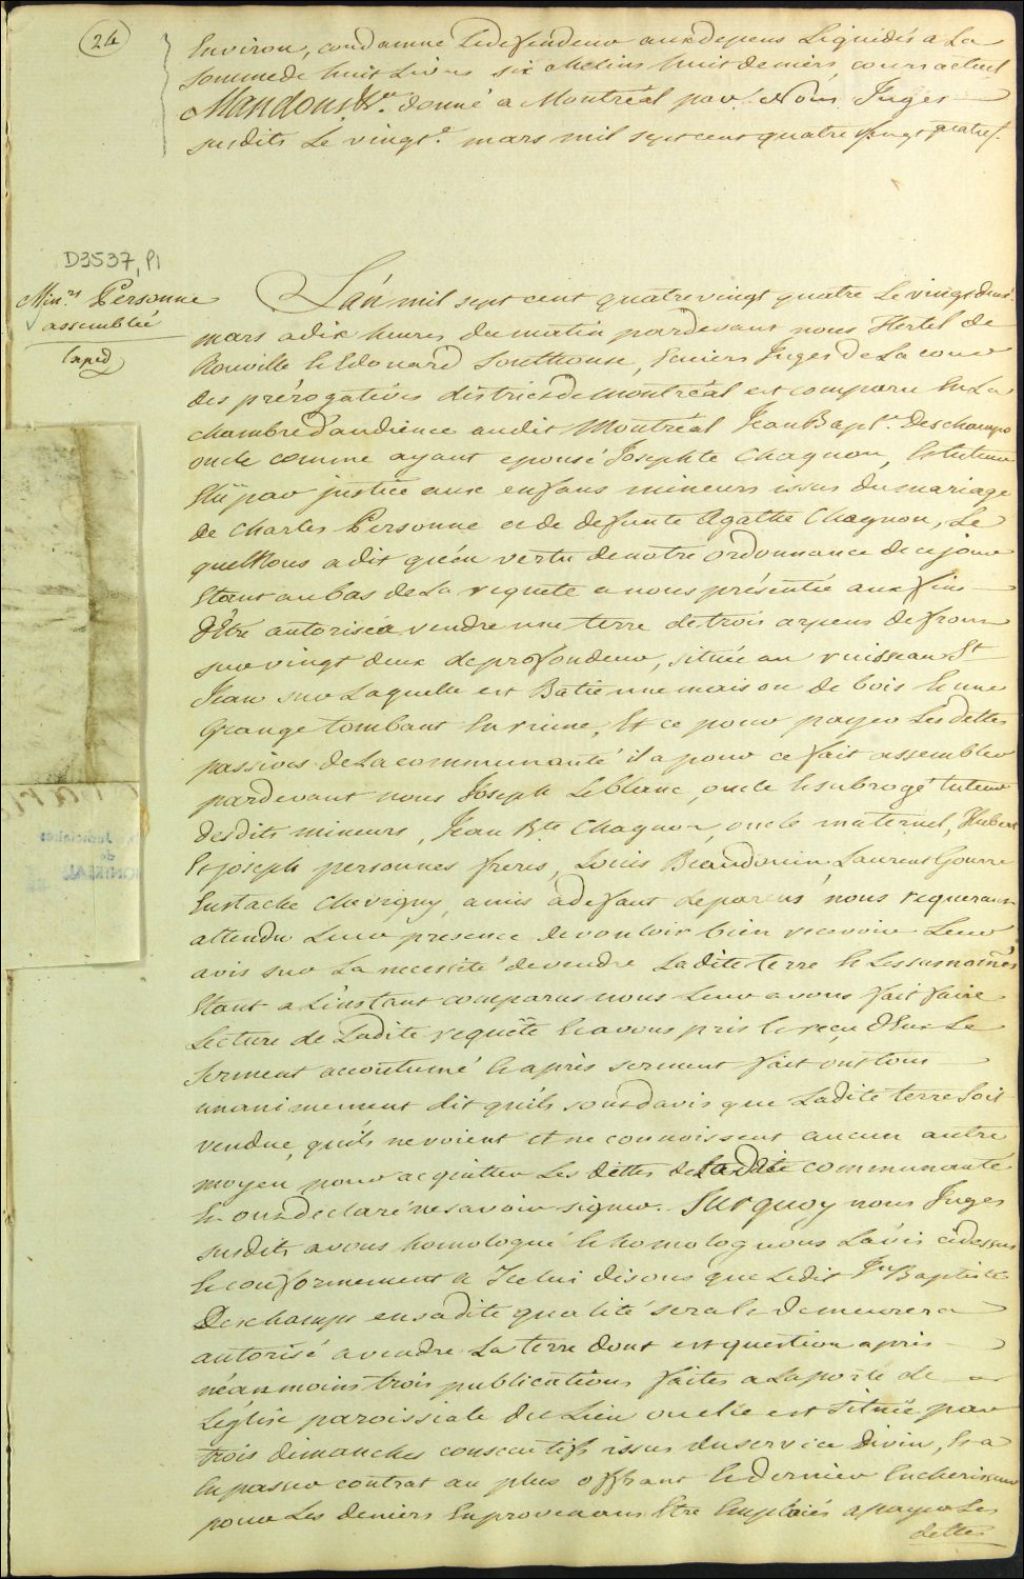 24
Environ, condamne Ledefendeur auxdepens Liquidés a La
Sommede huit Livres six chelins huit deniers, cours actuel
Mandons &c. donné a Montréal par Nous Juges
susdits Le vingt mars mil sept cent quatre vingt quatre /.
D3537, P1
Min.rs Personne
assemblée
Exped
L'an mil sept cent quatrevingt quatre Le vingt deux
mars adix heures du matin pardevant nous Hertel de
Rouville & Edouard Southouse, Ecuiers Juges de La cour
des prérogatives district de Montréal est comparu En La
chambre d'audience audit Montréal Jean Bapt.te Deschamps
oncle comme ayant epousé Josephte Chagnon, & tuteur
Elû par justice aux enfans mineurs issus du mariage
de Charles Personne et de defunte Agathe Chagnon, Le
quel Nous a dit qu'en vertu denotre ordonnance de ce jour
Etant au bas de La requete a nous présentée aux fins
d'Etre autorisé a vendre une terre de trois arpens de front
sur vingt deux de profondeur, située au ruisseau St
Jean sur Laquelle est Batie une maison de bois & une
Grange tombant En ruine, Et ce pour payer Les dettes
passives de La communauté il a pour ce fait assembler
pardevant nous Joseph Leblanc, oncle & subrogé tuteur
desdits mineurs, Jean Bte Chagnon, oncle maternel, Hubert
Et joseph personnes freres, Louis Beaudouin, Laurent Gourre
Eustache Chevigny, amis a defaut de parens nous requerant
attendu Leur presence de vouloir bien recevoir Leur
avis sur La necessité de vendre Ladite terre & Les susnommés
Etant a L'instant comparus nous Leur avons fait faire
Lecture de Ladite requête & avons pris & reçu d'Eux Le
Serment accoutumé & après serment fait ont tous
unanimement dit qu'ils sont d'avis que Ladite terre soit
vendue, qu'ils ne voient et ne connoissent aucun autre
moyen pour acquitter Les dettes de Ladite communauté
& ont declaré ne savoir signer. Sur quoy nous Juges
susdits avons homologué & homologuons L'avis cidessus
& conformement a Icelui disons que Ledit Jn Baptiste
Deschamps en sadite qualité sera & demeurera
autorisé a vendre La terre dont est question après
néanmoins trois publications faites a La porte de
L'église paroissiale du Lieu ou elle est située par
trois dimanches consecutifs issue du service Divin, & a
En passer contrat au plus offrant & dernier Encherisseur
pour Les deniers En provenans Etre Emploiés a payer Les
dettes